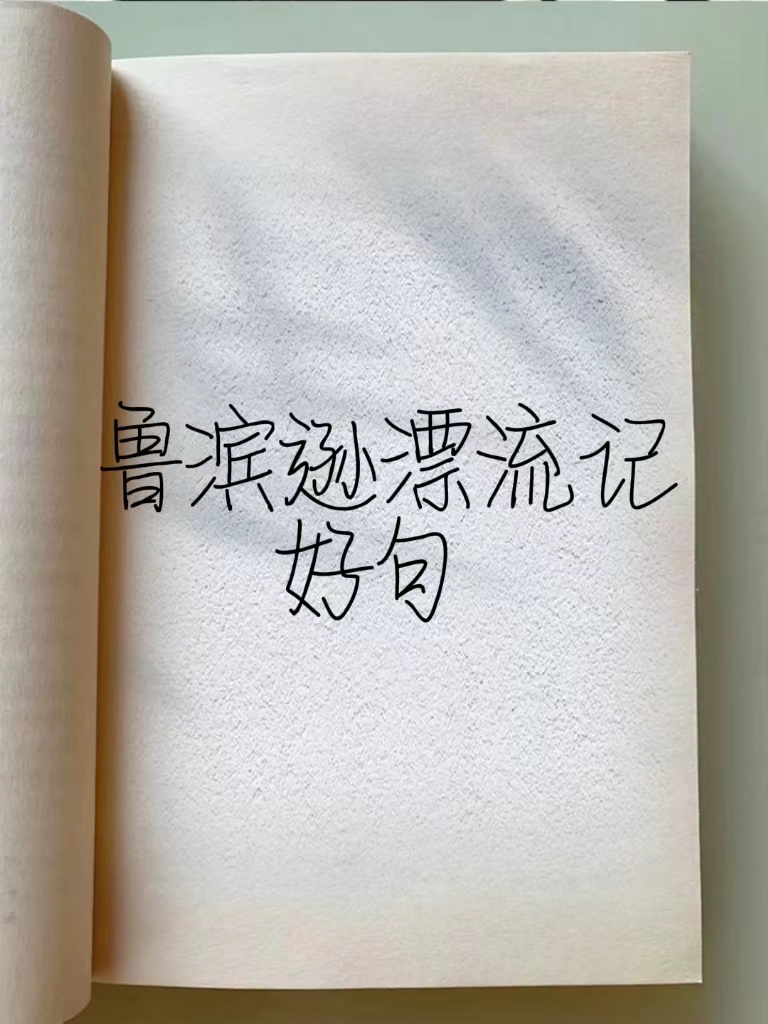 鲁滨逊漂流记
好句